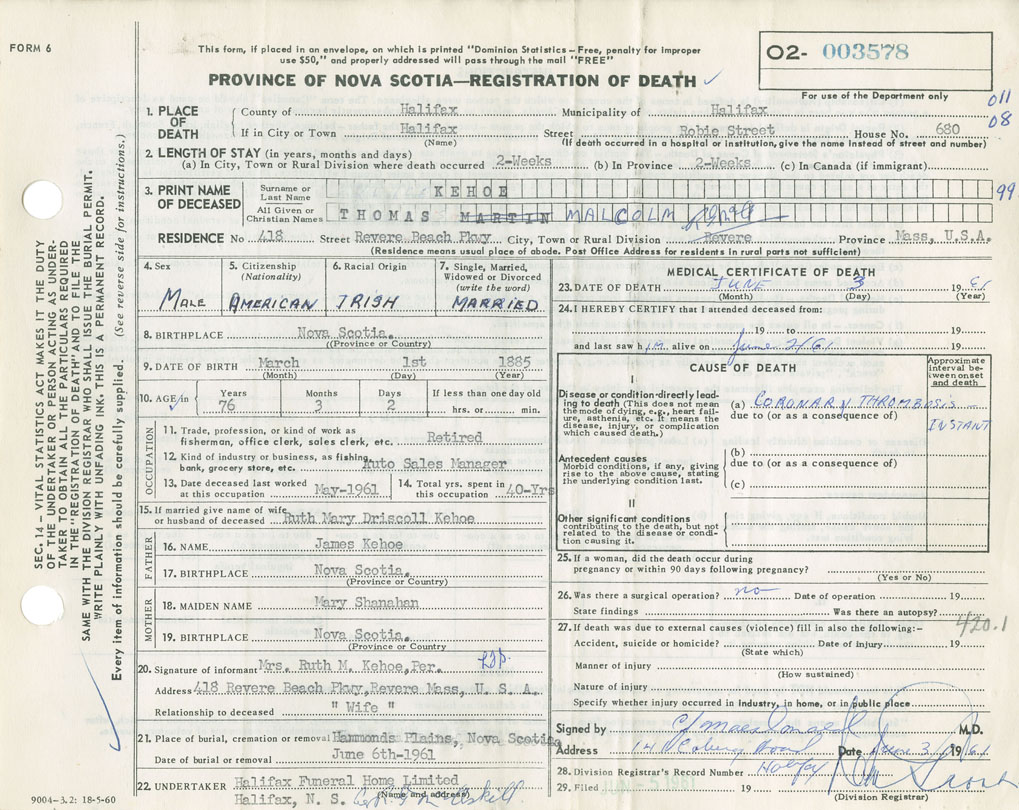 FORM 6
This form, if placed in an envelope, on which is printed "Dominion Statistics – Free, penalty for improper
use $50," and properly addressed will pass through the mail "FREE"
PROVINCE OF NOVA SCOTIA—REGISTRATION OF DEATH ✓
O2- 003578
For use of the Department only
011
08
99
1. PLACE OF DEATH
County of Halifax Municipality of Halifax
If in City or Town Halifax Street Robie Street House No. 680
(Name) (If death occurred in a hospital or institution, give the name instead of street and number)
2. LENGTH OF STAY (in years, months and days)
(a) In City, Town or Rural Division where death occurred 2-Weeks (b) In Province 2-Weeks (c) In Canada (if immigrant)
3. PRINT NAME OF DECEASED
Surname or Last Name KEHOE
All Given or Christian Names THOMAS MARTIN MALCOLM
RESIDENCE No 418 Street Revere Beach Pkwy City, Town or Rural Division Revere Province Mass, U.S.A.
(Residence means usual place of abode. Post Office Address for residents in rural parts not sufficient)
4. Sex
MALE
5. Citizenship (Nationality)
AMERICAN
6. Racial Origin
IRISH
7. Single, Married, Widowed or Divorced (write the word)
MARRIED
8. BIRTHPLACE Nova Scotia.
(Province or Country)
9. DATE OF BIRTH March 1st 1885
(Month) (Day) (Year)
10. AGE in ✓ Years 76 Months 3 Days 2 If less than one day old hrs. or min.
OCCUPATION
11. Trade, profession, or kind of work as
fisherman, office clerk, sales clerk, etc. Retired
12. Kind of industry or business, as fishing,
bank, grocery store, etc. Auto Sales Manager
13. Date deceased last worked at this occupation May-1961
14. Total yrs. spent in this occupation 40-Yrs
15. If married give name of wife
or husband of deceased Ruth Mary Driscoll Kehoe
FATHER
16. NAME James Kehoe
17. BIRTHPLACE Nova Scotia.
(Province or Country)
MOTHER
18. MAIDEN NAME Mary Shanahan
19. BIRTHPLACE Nova Scotia.
(Province or Country)
20. Signature of informant Mrs. Ruth M. Kehoe, Per.
Address 418 Revere Beach Pkwy, Revere Mass, U. S. A.
Relationship to deceased " Wife "
21. Place of burial, cremation or removal Hammonds Plains, Nova Scotia
Date of burial or removal June 6th-1961
22. UNDERTAKER Halifax Funeral Home Limited
(Name and address)
Halifax, N. S.
MEDICAL CERTIFICATE OF DEATH
23. DATE OF DEATH JUNE 3 19 61
(Month) (Day) (Year)
24. I HEREBY CERTIFY that I attended deceased from:
19 to 19
and last saw h im alive on June 2/61 19
CAUSE OF DEATH
Approximate interval between onset and death
I
Disease or condition directly leading to death (This does not mean
the mode of dying, e.g., heart failure, asthenia, etc. It means the
disease, injury, or complication which caused death.)
(a) CORONARY THROMBOSIS
due to (or as a consequence of)
INSTANT
Antecedent causes
Morbid conditions, if any, giving
rise to the above cause, stating
the underlying condition last.
(b)
due to (or as a consequence of)
(c)
II
Other significant conditions
contributing to the death, but not
related to the disease or condition causing it.
25. If a woman, did the death occur during
pregnancy or within 90 days following pregnancy?
(Yes or No)
26. Was there a surgical operation? no Date of operation 19
State findings Was there an autopsy?
420.1
27. If death was due to external causes (violence) fill in also the following:–
Accident, suicide or homicide? Date of injury 19
(State which)
Manner of injury
(How sustained)
Nature of injury
Specify whether injury occurred in Industry, in home, or in public place
Signed by M.D.
Address Date June 3 19 61
28. Division Registrar's Record Number
29. Filed 19
(Division Registrar)
SEC. 14 – VITAL STATISTICS ACT MAKES IT THE DUTY
OF THE UNDERTAKER OR PERSON ACTING AS UNDERTAKER
TO OBTAIN ALL THE PARTICULARS REQUIRED
IN THE "REGISTRATION OF DEATH" AND TO FILE THE
SAME WITH THE DIVISION REGISTRAR WHO SHALL ISSUE THE BURIAL PERMIT.
WRITE PLAINLY WITH UNFADING INK. THIS IS A PERMANENT RECORD.
Every item of information should be carefully supplied. (See reverse side for instructions.)
9004–3.2: 18-5-60